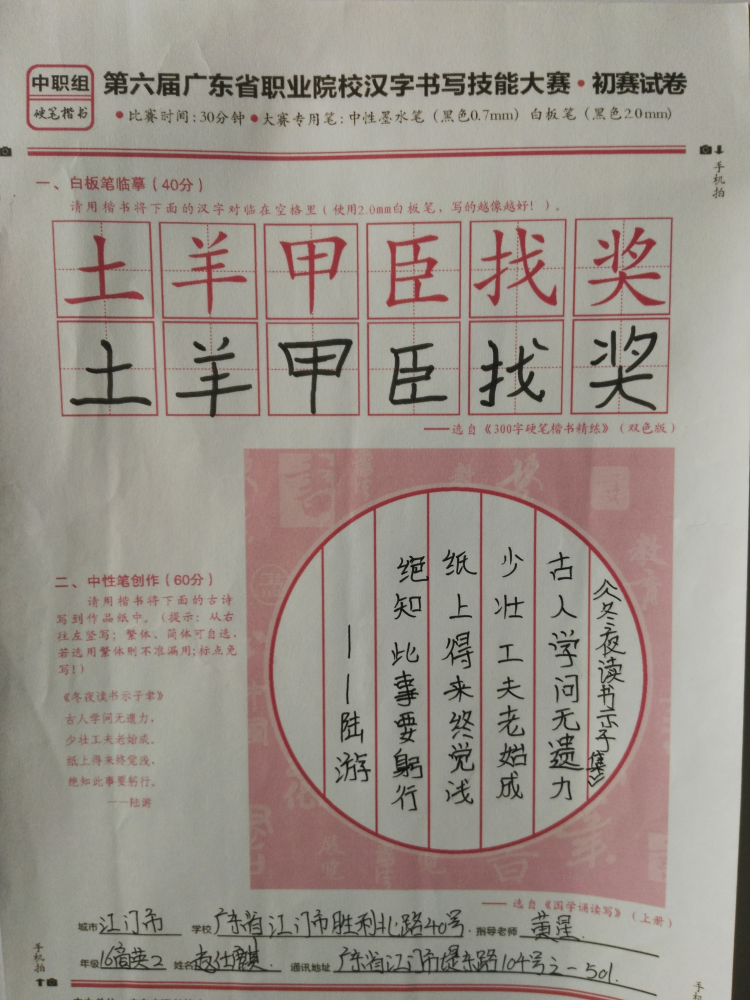 中职组
硬笔楷书
第六届广东省职业院校汉字书写技能大赛·初赛试卷
●比赛时间:30分钟●大赛专用笔:中性墨水笔(黑色0.7mm) 白板笔(黑色2.0mm)
手机拍
一、白板笔临摹(40分)
请用楷书将下面的汉字对临在空格里(使用2.0mm白板笔,写的越像越好!)。
土羊甲臣找奖
土羊甲臣找奖
——选自《300字硬笔楷书精练》(双色版)
二、中性笔创作(60分)
请用楷书将下面的古诗
写到作品纸中。(提示:从右
往左竖写;繁体、简体可自选,
若选用繁体则不准漏用;标点免
写!)
《冬夜读书示子聿》
古人学问无遗力,
少壮工夫老始成。
纸上得来终觉浅,
绝知此事要躬行。
——陆游
古人学问无遗力
少壮工夫老始成
纸上得来终觉浅
绝知此事要躬行
——陆游
——选自《国学诵读写》(上册)
城市 江门市 学校 广东省江门市胜利北路40号 指导老师 黄星
手机拍
年级 16高英2 姓名 通讯地址 广东省江门市堤东路104号之一501.
手机